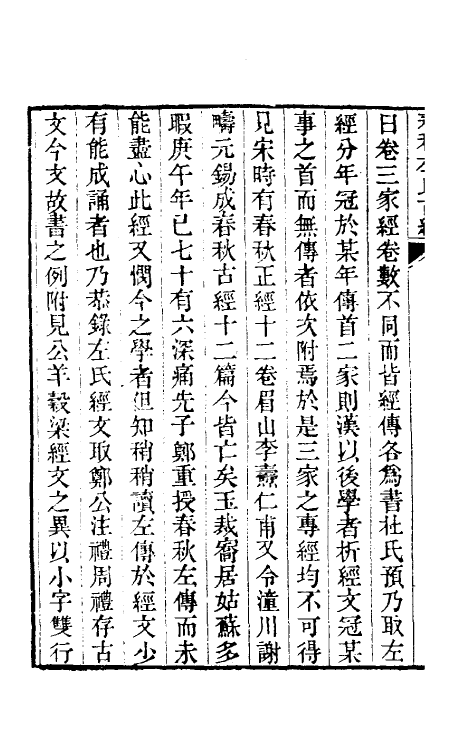 曰卷三家經卷數不同而皆經傳各爲書杜氏預乃取左
經分年冠於某年傳首二家則漢以後學者析經文冠某
事之首而無傳者依次附焉於是三家之專經均不可得
見宋時有春秋正經十二卷眉山李燾仁甫又令潼川謝
疇元錫成春秋古經十二篇今皆亡矣玉裁僑居姑蘇多
暇庚午年已七十有六深痛先子鄭重授春秋左傳而未
能盡心此經又憫今之學者但知稍稍讀左傳於經文少
有能成誦者也乃恭錄左氏經文取鄭公注禮周禮存古
文今文故書之例附見公羊穀梁經文之異以小字雙行